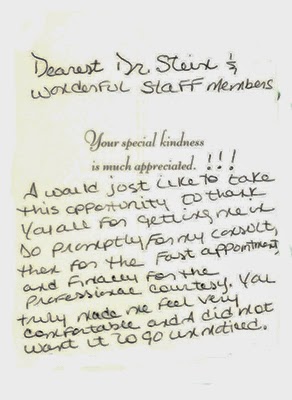 Dearest Dr. Stein &
Wonderful Staff Members,
Your special kindness
is much appreciated. !!!
I would just like to take
this opportunity to thank
You all for getting me in
so promptly for my consult,
then for the fast appointment,
and finally for the
professional courtesy. You
truly made me feel very
comfortable and I did not
want it to go unnoticed.